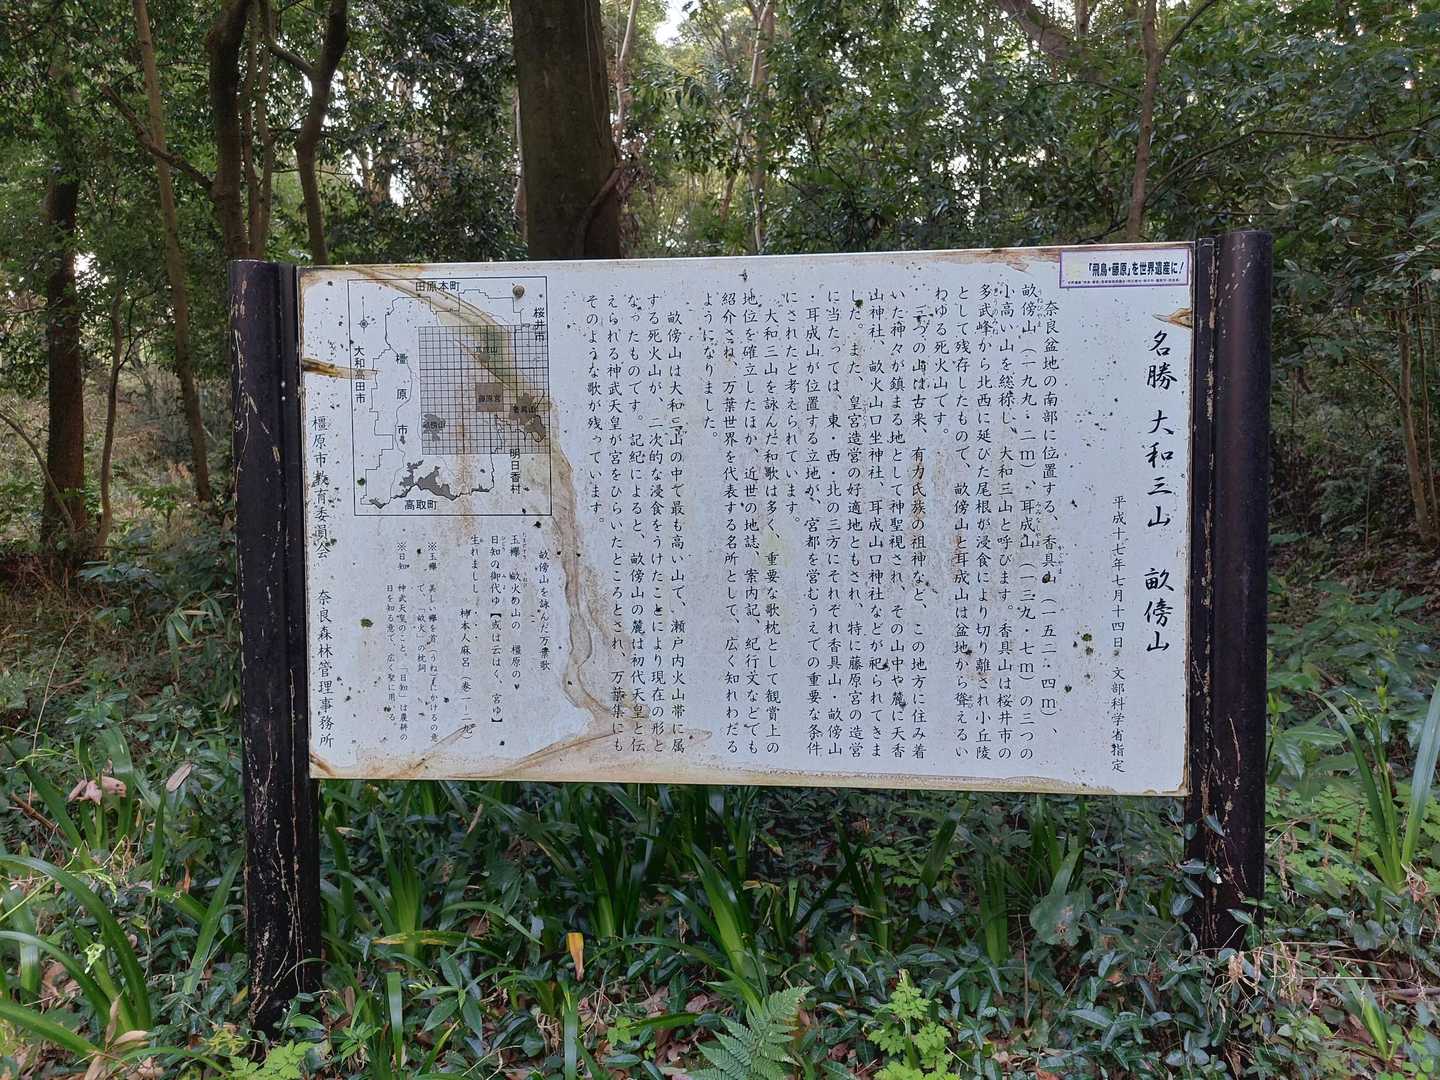 「飛鳥・藤原」を世界遺産に!
名勝 大和三山 畝傍山
平成十七年七月十四日 文部科学省指定
奈良盆地の南部に位置する、香具山(一五二・四m)、
畝傍山(一九九・二m)、耳成山(一三九・七m)の三つの
小高い山を総称し、大和三山と呼びます。香具山は桜井市の
多武峰から北西に延びた尾根が浸食により切り離され小丘陵
として残存したもので、畝傍山と耳成山は盆地から聳えるい
わゆる死火山です。
三つの山は古来、有力氏族の祖神など、この地方に住み着
いた神々が鎮まる地として神聖視され、その山中や麓に天香
山神社、畝火山口坐神社、耳成山口神社などが祀られてきま
した。また、皇宮造営の好適地ともされ、特に藤原宮の造営
に当たっては、東・西・北の三方にそれぞれ香具山、畝傍山
・耳成山が位置する立地が、宮都を営むうえでの重要な条件
にされたと考えられています。
大和三山を詠んだ和歌は多く、重要な歌枕として観賞上の
地位を確立したほか、近世の地誌、案内記、紀行文などでも
紹介され、万葉世界を代表する名所として、広く知れわたる
ようになりました。
畝傍山は大和三山の中で最も高い山で、瀬戸内火山帯に属
する死火山が、二次的な浸食をうけたことにより現在の形と
なったものです。記紀によると、畝傍山の麓は初代天皇と伝
えられる神武天皇が宮をひらいたところとされ、万葉集にも
そのような歌が残っています。
畝傍山を詠んだ万葉歌
玉襷 畝火の山の 橿原の
日知の御代ゆ【或は云はく、宮ゆ】
生れましし・・・
柿本人麻呂(巻一-二九)
※玉襷 美しい襷を項(うね)にかけるの意
で、「畝火」の枕詞
※日知 神武天皇のこと、「日知」は農耕の
日を知る意で広く聖に用いる。
橿原市教育委員会 奈良森林管理事務所
田原本町
桜井市
大和高田市
橿原市
耳成山
藤原宮
香具山
畝傍山
明日香村
高取町